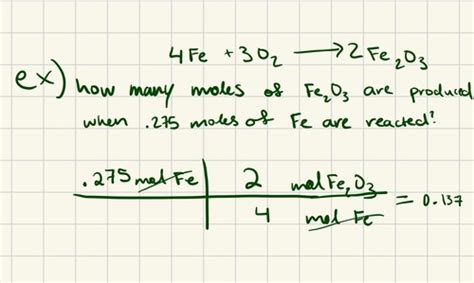 4Fe + 3O₂ ⟶ 2Fe₂O₃
ex) how many moles of Fe₂O₃ are produced
when .275 moles of Fe are reacted?
.275 mol Fe | 2 mol Fe₂O₃ = 0.137
4 mol Fe